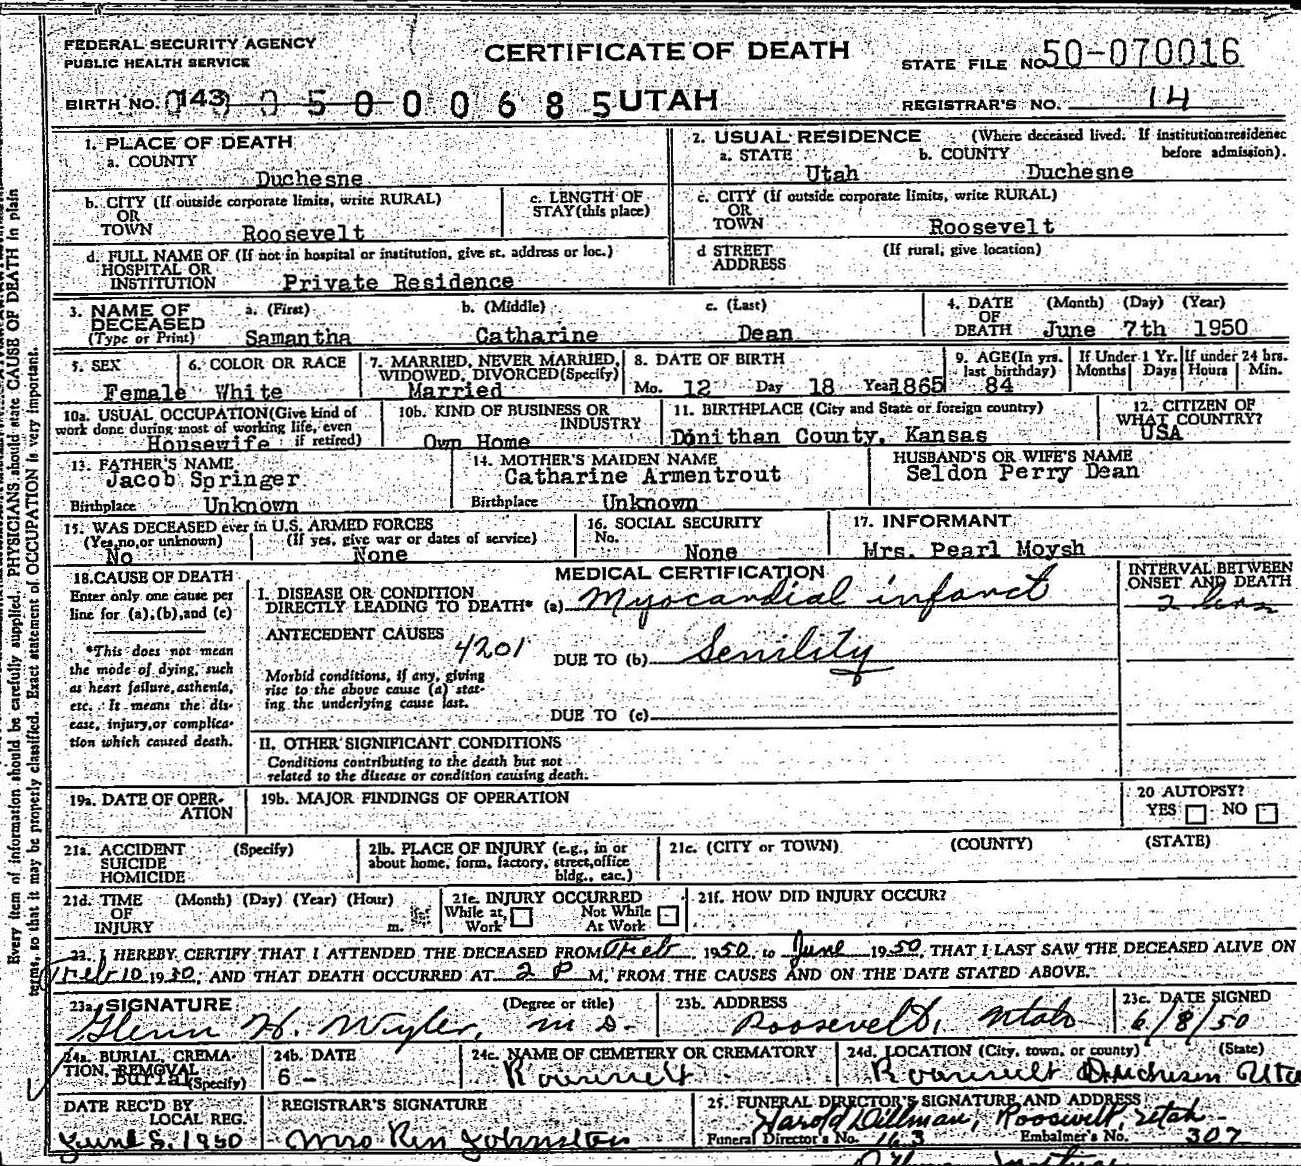 FEDERAL SECURITY AGENCY
PUBLIC HEALTH SERVICE
CERTIFICATE OF DEATH
STATE FILE NO. 50-070016
BIRTH NO. 143 0 5 0 0 0 6 8 5 UTAH
REGISTRAR'S NO. 14
1. PLACE OF DEATH
a. COUNTY
Duchesne
2. USUAL RESIDENCE (Where deceased lived. If institution: residence before admission).
a. STATE b. COUNTY
Utah Duchesne
b. CITY (If outside corporate limits, write RURAL)
OR
TOWN Roosevelt
c. LENGTH OF
STAY (this place)
c. CITY (If outside corporate limits, write RURAL)
OR
TOWN Roosevelt
d. FULL NAME OF (If not in hospital or institution, give st. address or loc.)
HOSPITAL OR
INSTITUTION Private Residence
d STREET (If rural, give location)
ADDRESS
3. NAME OF DECEASED (Type or Print)
a. (First) b. (Middle) c. (Last)
Samantha Catharine Dean
4. DATE OF DEATH (Month) (Day) (Year)
June 7th 1950
5. SEX
Female
6. COLOR OR RACE
White
7. MARRIED, NEVER MARRIED,
WIDOWED, DIVORCED (Specify)
Married
8. DATE OF BIRTH
Mo. 12 Day 18 Year 1865
9. AGE (In yrs. last birthday)
84
If Under 1 Yr.
Months Days
If under 24 hrs.
Hours Min.
10a. USUAL OCCUPATION (Give kind of
work done during most of working life, even
if retired)
Housewife
10b. KIND OF BUSINESS OR
INDUSTRY
Own Home
11. BIRTHPLACE (City and State or foreign country)
Donithan County, Kansas
12. CITIZEN OF
WHAT COUNTRY?
USA
13. FATHER'S NAME
Jacob Springer
Birthplace Unknown
14. MOTHER'S MAIDEN NAME
Catharine Armentrout
Birthplace Unknown
HUSBAND'S OR WIFE'S NAME
Seldon Perry Dean
15. WAS DECEASED ever in U.S. ARMED FORCES
(Yes, no, or unknown) (If yes, give war or dates of service)
No None
16. SOCIAL SECURITY
No.
None
17. INFORMANT
Mrs. Pearl Moysh
18. CAUSE OF DEATH
Enter only one cause per
line for (a), (b), and (c)
*This does not mean
the mode of dying, such
as heart failure, asthenia,
etc. It means the dis-
ease, injury, or complica-
tion which caused death.
MEDICAL CERTIFICATION
INTERVAL BETWEEN
ONSET AND DEATH
I. DISEASE OR CONDITION
DIRECTLY LEADING TO DEATH* (a) Myocardial infarct
ANTECEDENT CAUSES
4201
DUE TO (b) Senility
Morbid conditions, if any, giving
rise to the above cause (a) stat-
ing the underlying cause last.
DUE TO (c)
II. OTHER SIGNIFICANT CONDITIONS
Conditions contributing to the death but not
related to the disease or condition causing death.
19a. DATE OF OPER-
ATION
19b. MAJOR FINDINGS OF OPERATION
20 AUTOPSY?
YES NO
21a. ACCIDENT (Specify)
SUICIDE
HOMICIDE
21b. PLACE OF INJURY (e.g., in or
about home, form, factory, street, office
bldg., eac.)
21c. (CITY or TOWN) (COUNTY) (STATE)
21d. TIME (Month) (Day) (Year) (Hour)
OF
INJURY m.
21e. INJURY OCCURRED
While at Work Not While At Work
21f. HOW DID INJURY OCCUR?
22. I HEREBY CERTIFY THAT I ATTENDED THE DECEASED FROM Feb, 1950, to June 1950, THAT I LAST SAW THE DECEASED ALIVE ON
Feb 10 1950, AND THAT DEATH OCCURRED AT 2 P M. FROM THE CAUSES AND ON THE DATE STATED ABOVE.
23a. SIGNATURE (Degree or title)
Glenn H. Wyler, M D.
23b. ADDRESS
Roosevelt, Utah
23c. DATE SIGNED
6/8/50
24a. BURIAL, CREMA-
TION, REMOVAL
(Specify)
Burial
24b. DATE
6 -
24c. NAME OF CEMETERY OR CREMATORY
Roosevelt
24d. LOCATION (City, town, or county) (State)
Roosevelt Duchesne Uta
DATE REC'D BY
LOCAL REG.
June 8, 1950
REGISTRAR'S SIGNATURE
Mrs Ren Johnston
25. FUNERAL DIRECTOR'S SIGNATURE AND ADDRESS
Harold Dillman, Roosevelt, Utah
Funeral Director's No. 163 Embalmer's No. 307
Every item of information should be carefully supplied. PHYSICIANS should state CAUSE OF DEATH in plain
terms, so that it may be properly classified. Exact statement of OCCUPATION is very important.